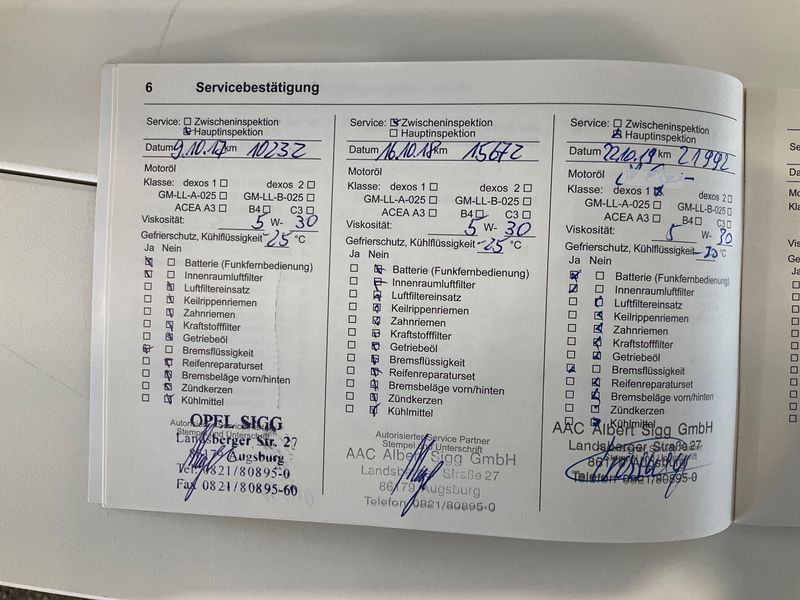 6 Servicebestätigung
Service: Zwischeninspektion
Hauptinspektion
Datum 9.10.17 km 10232
Motoröl
Klasse: dexos 1 dexos 2
GM-LL-A-025 GM-LL-B-025
ACEA A3 B4 C3
Viskosität: 5 W- 30
Gefrierschutz, Kühlflüssigkeit -25 °C
Ja Nein
Batterie (Funkfernbedienung)
Innenraumluftfilter
Luftfiltereinsatz
Keilrippenriemen
Zahnriemen
Kraftstofffilter
Getriebeöl
Bremsflüssigkeit
Reifenreparaturset
Bremsbeläge vorn/hinten
Zündkerzen
Kühlmittel
OPEL SIGG
Landsberger Str. 27
Augsburg
Tel. 0821/80895-0
Fax 0821/80895-60
Service: Zwischeninspektion
Hauptinspektion
Datum 16.10.18 km 15672
Motoröl
Klasse: dexos 1 dexos 2
GM-LL-A-025 GM-LL-B-025
ACEA A3 B4 C3
Viskosität: 5 W- 30
Gefrierschutz, Kühlflüssigkeit -25 °C
Ja Nein
Batterie (Funkfernbedienung)
Innenraumluftfilter
Luftfiltereinsatz
Keilrippenriemen
Zahnriemen
Kraftstofffilter
Getriebeöl
Bremsflüssigkeit
Reifenreparaturset
Bremsbeläge vorn/hinten
Zündkerzen
Kühlmittel
Autorisierter Service Partner
Stempel und Unterschrift
AAC Albert Sigg GmbH
Landsberger Straße 27
86179 Augsburg
Telefon 0821/80895-0
Service: Zwischeninspektion
Hauptinspektion
Datum 22.10.19 km 21992
Motoröl
Klasse: dexos 1 dexos 2
GM-LL-A-025 GM-LL-B-025
ACEA A3 B4 C3
Viskosität: 5 W- 30
Gefrierschutz, Kühlflüssigkeit °C
Ja Nein
Batterie (Funkfernbedienung)
Innenraumluftfilter
Luftfiltereinsatz
Keilrippenriemen
Zahnriemen
Kraftstofffilter
Getriebeöl
Bremsflüssigkeit
Reifenreparaturset
Bremsbeläge vorn/hinten
Zündkerzen
Kühlmittel
AAC Albert Sigg GmbH
Landsberger Straße 27
Telefon 0821/80895-0